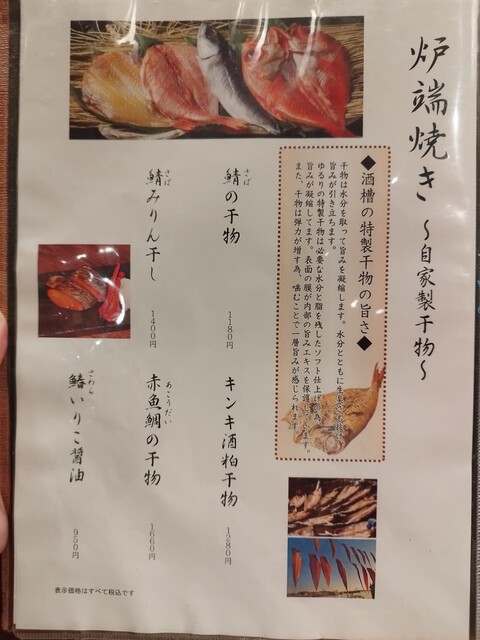 炉端焼き 〜自家製干物〜
◆酒槽の特製干物の旨さ◆
干物は水分を取って旨みを凝縮します。水分とともに生臭さも抜け
旨みが引き立ちます。
ゆるりの特製干物は必要な水分と脂を残したソフト仕上げの為、
旨みが凝縮してます。表面の膜が内部の旨みエキスを保護しています。
また、干物は弾力が増す為、噛むことで一層旨みが感じられます。
さば
鯖の干物
1180円
さば
鯖みりん干し
1400円
キンキ酒粕干物
1280円
あこうだい
赤魚鯛の干物
1660円
さわら
鰆いりこ醤油
950円
表示価格はすべて税込です